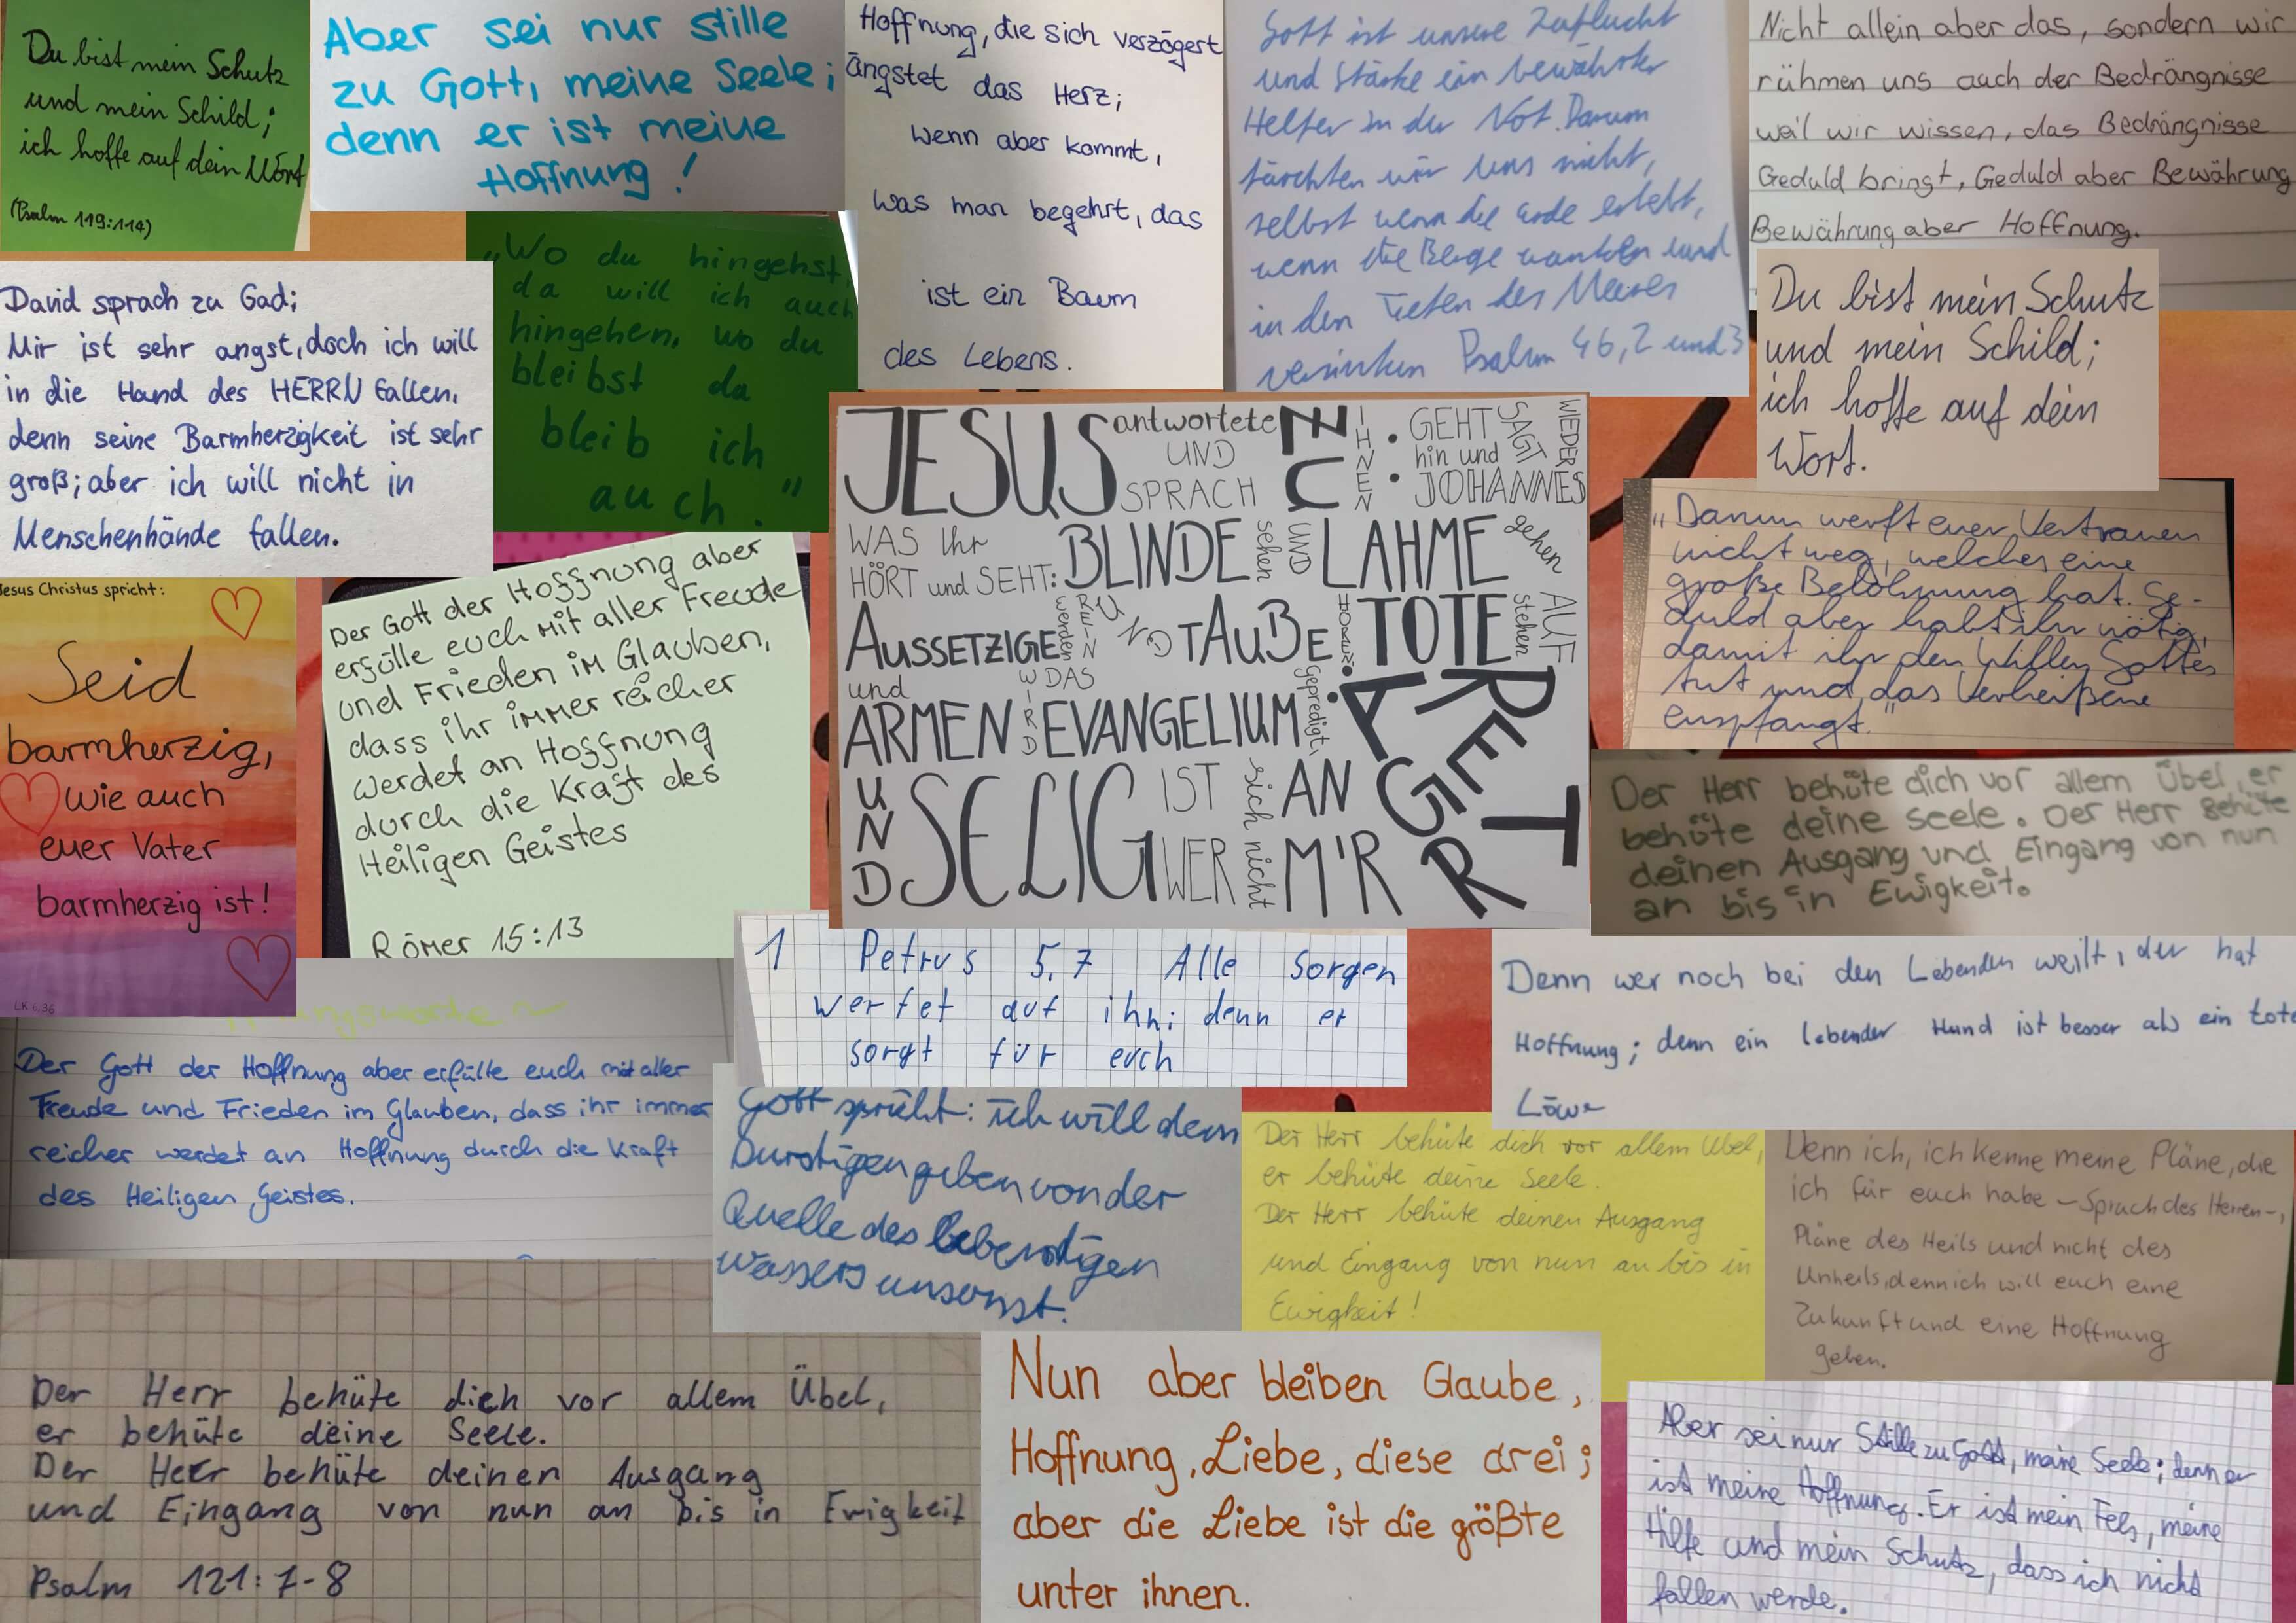 Du bist mein Schutz
und mein Schild;
ich hoffe auf dein Wort
(Psalm 119:114)
Aber sei nur stille
zu Gott, meine Seele;
denn er ist meine
Hoffnung!
Hoffnung, die sich verzögert
ängstet das Herz;
wenn aber kommt,
was man begehrt, das
ist ein Baum
des Lebens.
Gott ist unsere Zuflucht
und Stärke ein bewährter
Helfer in der Not. Darum
fürchten wir uns nicht,
selbst wenn die Erde erbebt,
wenn die Berge wanken und
in den Tiefen des Meeres
versinken Psalm 46,2 und 3
Nicht allein aber das, sondern wir
rühmen uns auch der Bedrängnisse
weil wir wissen, das Bedrängnisse
Geduld bringt, Geduld aber Bewährung
Bewährung aber Hoffnung.
David sprach zu Gad;
Mir ist sehr angst, doch ich will
in die Hand des HERRN fallen,
denn seine Barmherzigkeit ist sehr
groß; aber ich will nicht in
Menschenhände fallen.
„Wo du hingehst,
da will ich auch
hingehen, wo du
bleibst da
bleib ich
auch."
Du bist mein Schutz
und mein Schild;
ich hoffe auf dein
Wort.
JESUS antwortete UND SPRACH ZU IHNEN: GEHT hin und SAGT JOHANNES WIEDER
WAS Ihr HÖRT und SEHT: BLINDE sehen UND LAHME gehen
AUSSETZIGE werden REIN UND TAUBE HÖREN, TOTE stehen AUF
und ARMEN WIRD DAS EVANGELIUM gepredigt.
UND SELIG IST WER sich nicht AN MIR ÄRGERT
„Darum werft euer Vertrauen
nicht weg, welches eine
große Belohnung hat. Ge-
duld aber habt ihr nötig,
damit ihr den Willen Gottes
tut und das Verheißene
empfangt."
Jesus Christus spricht:
Seid
barmherzig,
wie auch
euer Vater
barmherzig ist!
LK 6,36
Der Gott der Hoffnung aber
erfülle euch mit aller Freude
und Frieden im Glauben,
dass ihr immer reicher
werdet an Hoffnung
durch die Kraft des
Heiligen Geistes
Römer 15:13
Der Herr behüte dich vor allem Übel, er
behüte deine Seele. Der Herr behüte
deinen Ausgang und Eingang von nun
an bis in Ewigkeit.
1 Petrus 5,7 Alle Sorgen
werfet auf ihn; denn er
sorgt für euch
Denn wer noch bei den Lebenden weilt, der hat
Hoffnung; denn ein lebender Hund ist besser als ein tote
Löwe
Der Gott der Hoffnung aber erfülle euch mit aller
Freude und Frieden im Glauben, dass ihr immer
reicher werdet an Hoffnung durch die Kraft
des Heiligen Geistes.
Gott spricht: ich will dem
Durstigen geben von der
Quelle des lebendigen
Wassers umsonst.
Der Herr behüte dich vor allem Übel,
er behüte deine Seele.
Der Herr behüte deinen Ausgang
und Eingang von nun an bis in
Ewigkeit!
Denn ich, ich kenne meine Pläne, die
ich für euch habe – Spruch des Herren –,
Pläne des Heils und nicht des
Unheils, denn ich will euch eine
Zukunft und eine Hoffnung
geben.
Der Herr behüte dich vor allem Übel,
er behüte deine Seele.
Der Herr behüte deinen Ausgang
und Eingang von nun an bis in Ewigkeit
Psalm 121:7-8
Nun aber bleiben Glaube,
Hoffnung, Liebe, diese drei;
aber die Liebe ist die größte
unter ihnen.
Aber sei nur Stille zu Gott, meine Seele; denn er
ist meine Hoffnung. Er ist mein Fels, meine
Hilfe und mein Schutz, dass ich nicht
fallen werde.